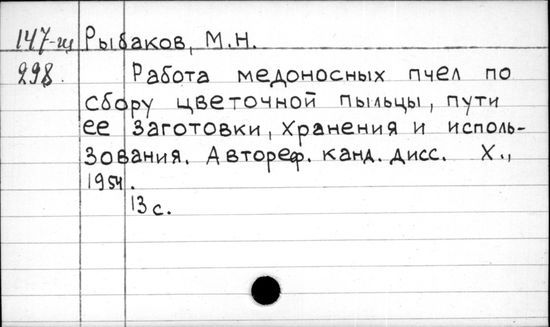 147-щ Рыбаков, М.Н.
298. Работа медоносных пчел по
сбору цветочной пыльцы, пути
ее заготовки, хранения и исполь-
зования. Автореф. канд. дисс. Х.,
1954.
13 с.